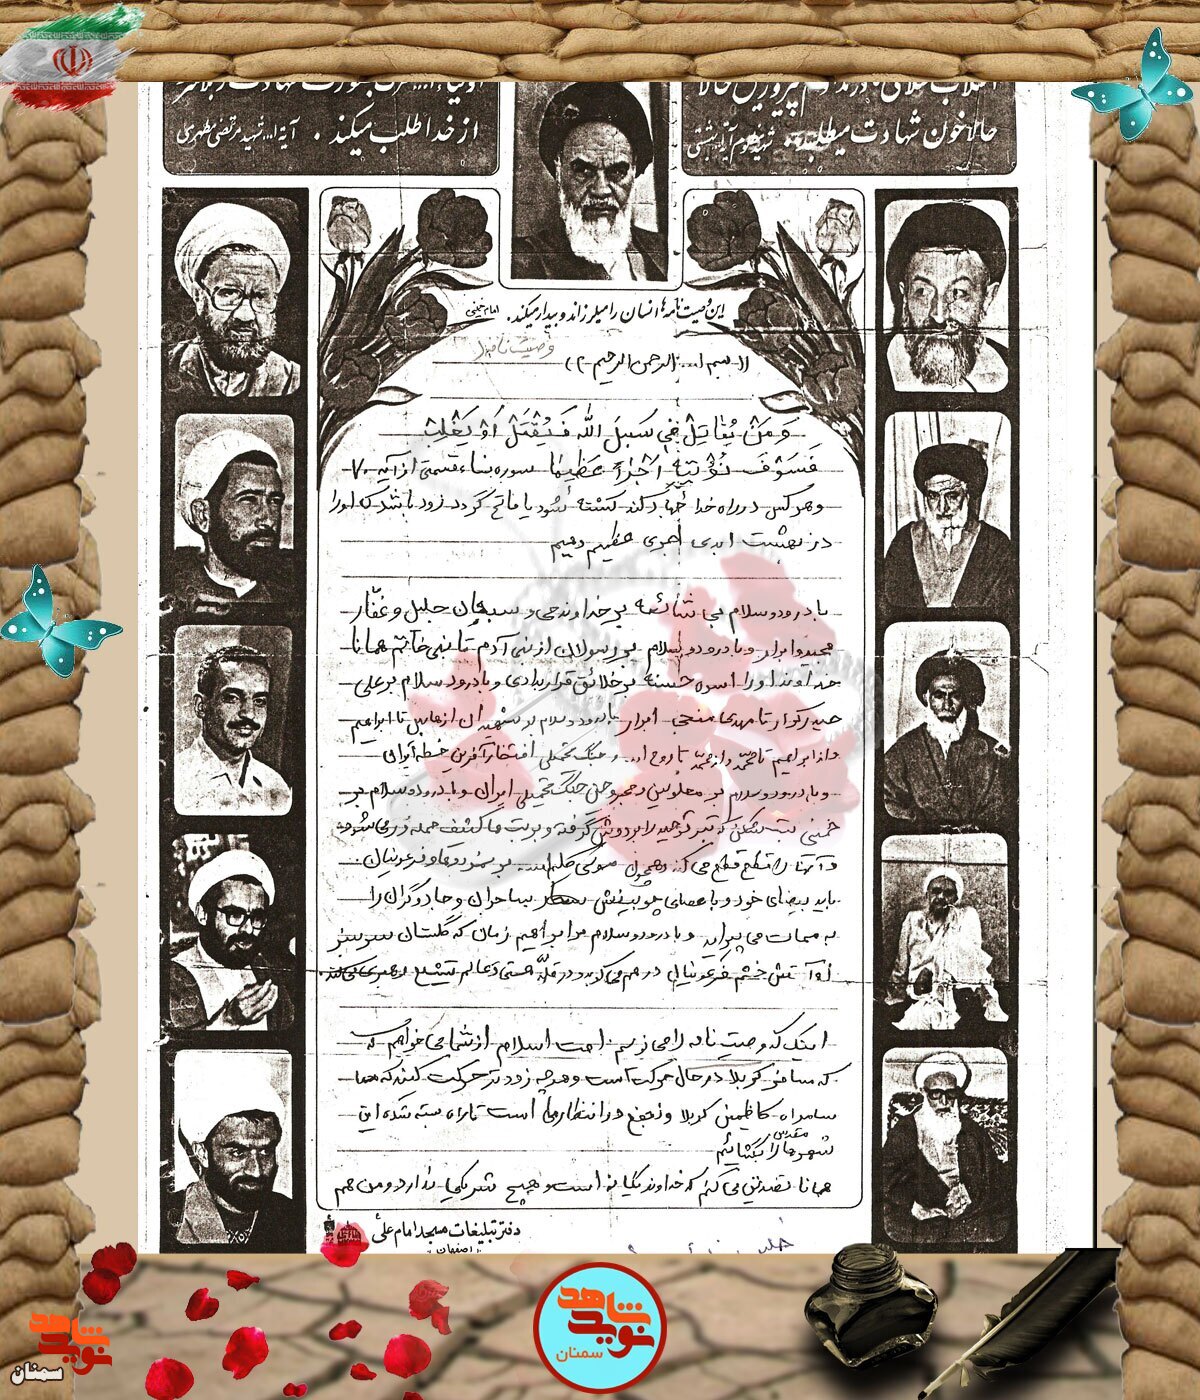 انقلاب اسلامی
حالا خون شهادت میطلبد.
از خدا طلب میکند. آیة ا... شهید مرتضی مطهری
این وصیت نامه‌ها انسان را میلرزاند و بیدار میکند. امام خمینی
وصیت نامه
((بسم ا... الرحمن الرحیم))
وَمَنْ یُقاتِلْ فِی سَبیلِ اللّه فَیُقْتَلْ اَوْ یَغْلِبْ
فَسَوْفَ نُؤْتیهِ اَجْراً عَظیما سوره نساء قسمتی از آیه ۷۰
و هر کس در راه خدا جهاد کند کشته شود یا فاتح گردد زود باشد که او را
در بهشت ابدی اجری عظیم دهیم
با درود و سلام بی شائبه بر خداوند حی و سبحان جلیل و غفار
و با درود و سلام بر رسولان از نبی آدم تا نبی خاتم همانا
خداوند او را اسوه حسنه بر خلائق قرار دادی و با درود و سلام بر علی
حیدر کرار تا مهدی منجی ابرار با درود و سلام بر شهیدان از هابیل تا ابراهیم
و از ابراهیم تا محمد و از محمد تا روح ا... و جنگ تحمیلی افتخار آفرین خطه ایران
و با درود و سلام بر معلولین و مجروحین جنگ تحمیلی ایران و با درود و سلام بر
خمینی بت شکن که تبر توحید را بر دوش گرفته و بر بت ها
و آنها را قطع قطع می کند و همچون موسی کلیم ا... بر نمرودها و فرعونیان
با ید بیضای خود و با عصای چوبینش ساحران و جادوگران را
به ممات می و با درود و سلام بر ابراهیم زمان که گلستان سرسبز
آتش خشم فرعونیان در هم می کوبد و در قله هستی و عالم تشیع رهبری می کند
اینک که وصیت نامه را می نویسم امت اسلام از شما می خواهم که
که مسافر کربلا در حال حرکت است و هر چه زودتر حرکت کنند که
سامراء کاظمین کربلا و نجف در انتظار ما است تا راه بسته شده این
شهرهای مقدس را بگشائیم
همانا تصدیق می کنم که خداوند یگانه است و هیچ شریکی ندارد و من هم
دفتر تبلیغات مسجد امام علی
اصفهان
نوید شاهد
سمنان
نوید شاهد
سمنان